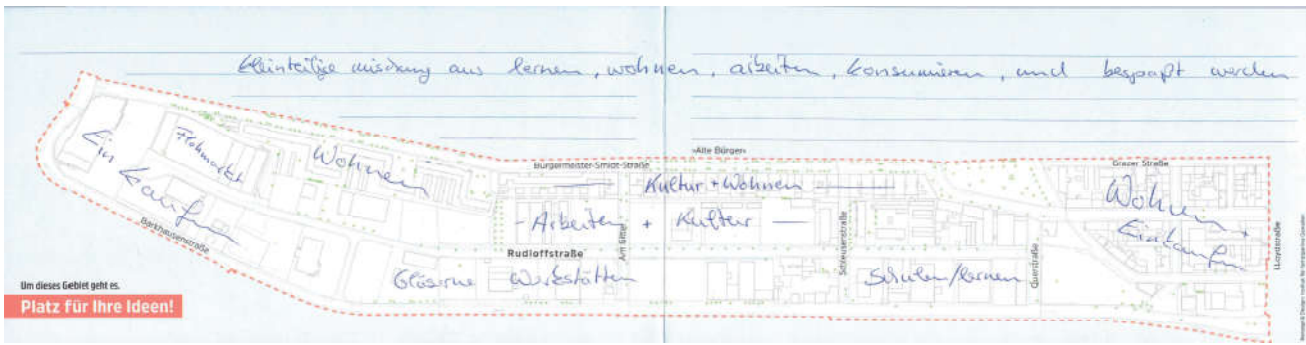 kleinteilige mischung aus lernen, wohnen, arbeiten, konsumieren, und bespaßt werden
Ein
kaufen
Flohmarkt
Wohnen
Bürgermeister-Smidt-Straße
»Alte Bürger«
Grazer Straße
Kultur + Wohnen
- Arbeiten + Kultur -
Wohnen +
Einkaufen
Barkhausenstraße
Am Gitter
Schleusenstraße
Querstraße
Lloydstraße
Rudloffstraße
Gläserne Werkstätten
Schulen/lernen
Um dieses Gebiet geht es.
Platz für Ihre Ideen!